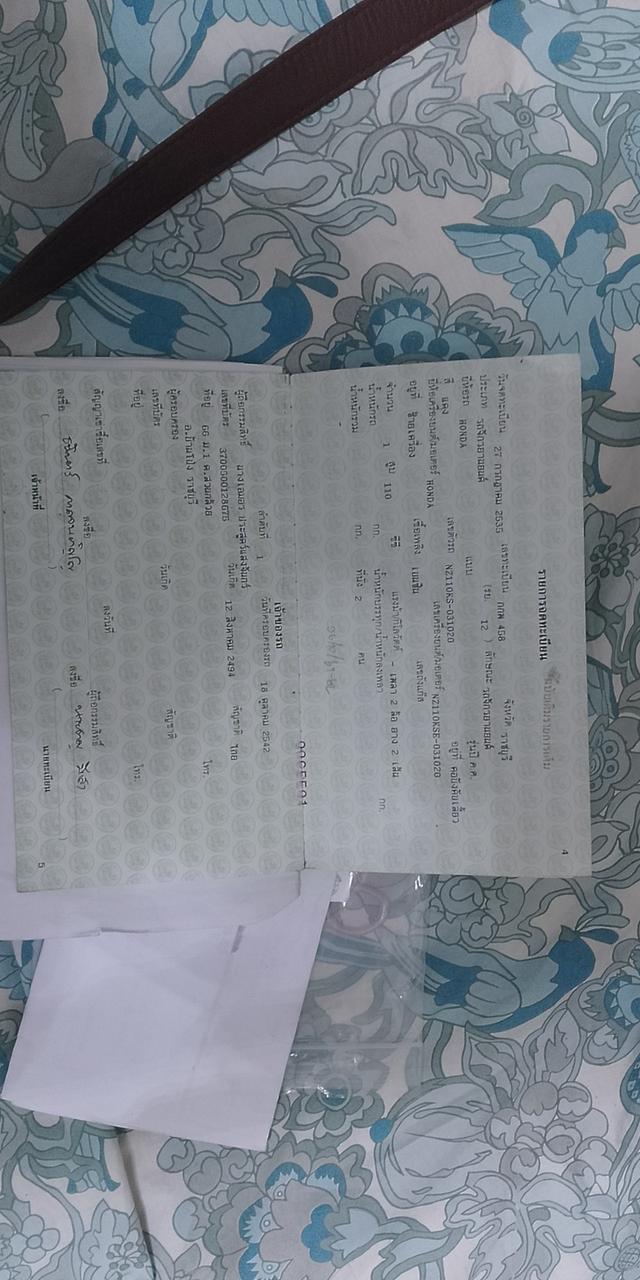 4
รายการจดทะเบียน
วันจดทะเบียน 27 กรกฎาคม 2535 เลขทะเบียน กกพ 458 จังหวัด ราชบุรี
ประเภท รถจักรยานยนต์ (รย. 12 ) ลักษณะ รถจักรยานยนต์
ยี่ห้อรถ HONDA แบบ รุ่นปี ค.ศ.
สี แดง เลขตัวรถ NZ110KS-031020 อยู่ที่ คอบังคับเลี้ยว
ยี่ห้อเครื่องยนต์/มอเตอร์ HONDA เลขเครื่องยนต์/มอเตอร์ NZ110KSE-031020
อยู่ที่ ซ้ายเครื่อง เชื้อเพลิง เบนซิน เลขถังแก๊ส
จำนวน 1 สูบ 110 ซีซี แรงม้า/กิโลวัตต์ - เพลา 2 ล้อ ยาง 2 เส้น
น้ำหนักรถ กก. น้ำหนักบรรทุก/น้ำหนักลงเพลา กก.
น้ำหนักรวม กก. ที่นั่ง 2 คน
เจ้าของรถ
ลำดับที่ 1 วันที่ครอบครองรถ 18 ตุลาคม 2542
ผู้ถือกรรมสิทธิ์
เลขที่บัตร วันเกิด 12 สิงหาคม 2494 สัญชาติ ไทย
ที่อยู่ 66 ม.1 ต.สวนกล้วย โทร.
อ.บ้านโป่ง ราชบุรี
ผู้ครอบครอง
เลขที่บัตร วันเกิด สัญชาติ
ที่อยู่ โทร.
สัญญาเช่าซื้อเลขที่ ลงวันที่ ผู้ถือกรรมสิทธิ์
ลงชื่อ ลงชื่อ
เจ้าหน้าที่ นายทะเบียน
5